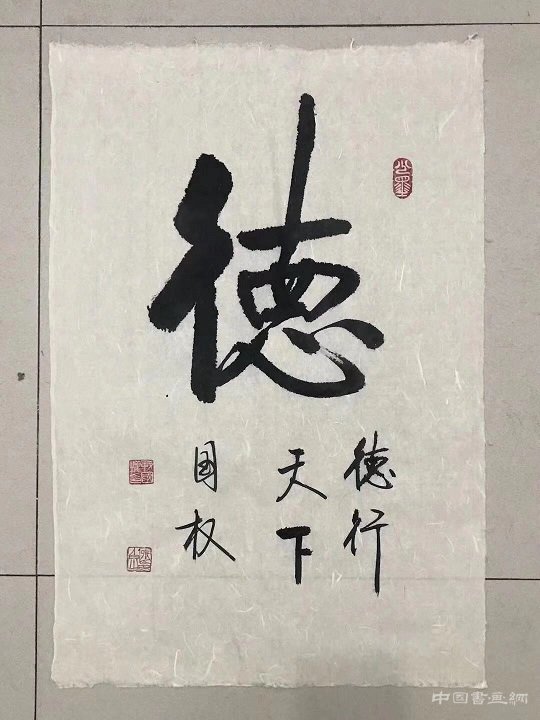 德
德行
天下
国权
中国書画網